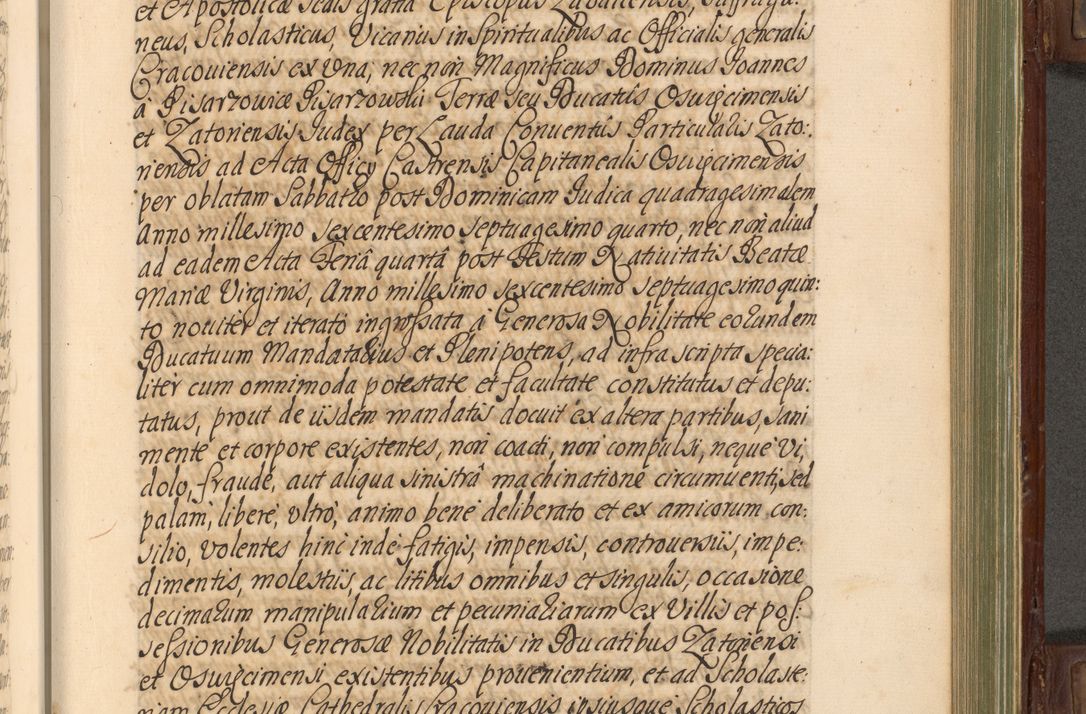 et Apostolicæ Sedis gratia Episcopus Zubaliensis, Suffraga:
neus, Scholasticus, Vicarius in Spiritualibus ac Officialis generalis
Cracoviensis ex Una, nec non Magnificus Dominus Joannes
à Pisarzowice Pisarzowski Terræ seu Ducatûs Osvigcimensis
et Zatoriensis Judex per Lauda Conventûs Particularis Zato:
riensis ad Acta Officy Castrensis Capitanealis Osvigcimensis
per oblatam Sabbatho post Dominicam Judica quadragesimalem
Anno millesimo sexcentesimo septuagesimo quarto, nec non aliud
ad eadem Acta Feriâ quartâ post Festum Nativitatis Beatæ
Mariæ Virginis, Anno millesimo sexcentesimo septuagesimo quin:
to noviter et iterato ingrossata à Generosa Nobilitate eorundem
Ducatuum Mandatarius et Plenipotens, ad infra scripta specia:
liter cum omnimoda potestate et facultate constitutus et depu:
tatus, prout de iisdem mandatis docuit ex altera partibus, sani
mente et corpore existentes, non coacti, non compulsi, neque vi,
dolo, fraude, aut aliqua sinistrâ machinatione circumventi, sed
palam, libere, ultrò, animo bene deliberato et ex amicorum con:
silio, volentes hinc inde fatigis, impensis, controversiis, impe:
dimentis, molestiis, ac litibus omnibus et singulis, occasione
decimarum manipularium et pecuniariarum ex Villis et pos:
sessionibus Generosæ Nobilitatis in Ducatibus Zatoriensi
et Osvigcimensi existentibus provenientium, et ad Scholaste:
riam Ecclesiæ Cathedralis Cracoviensis eiusque Scholasticos